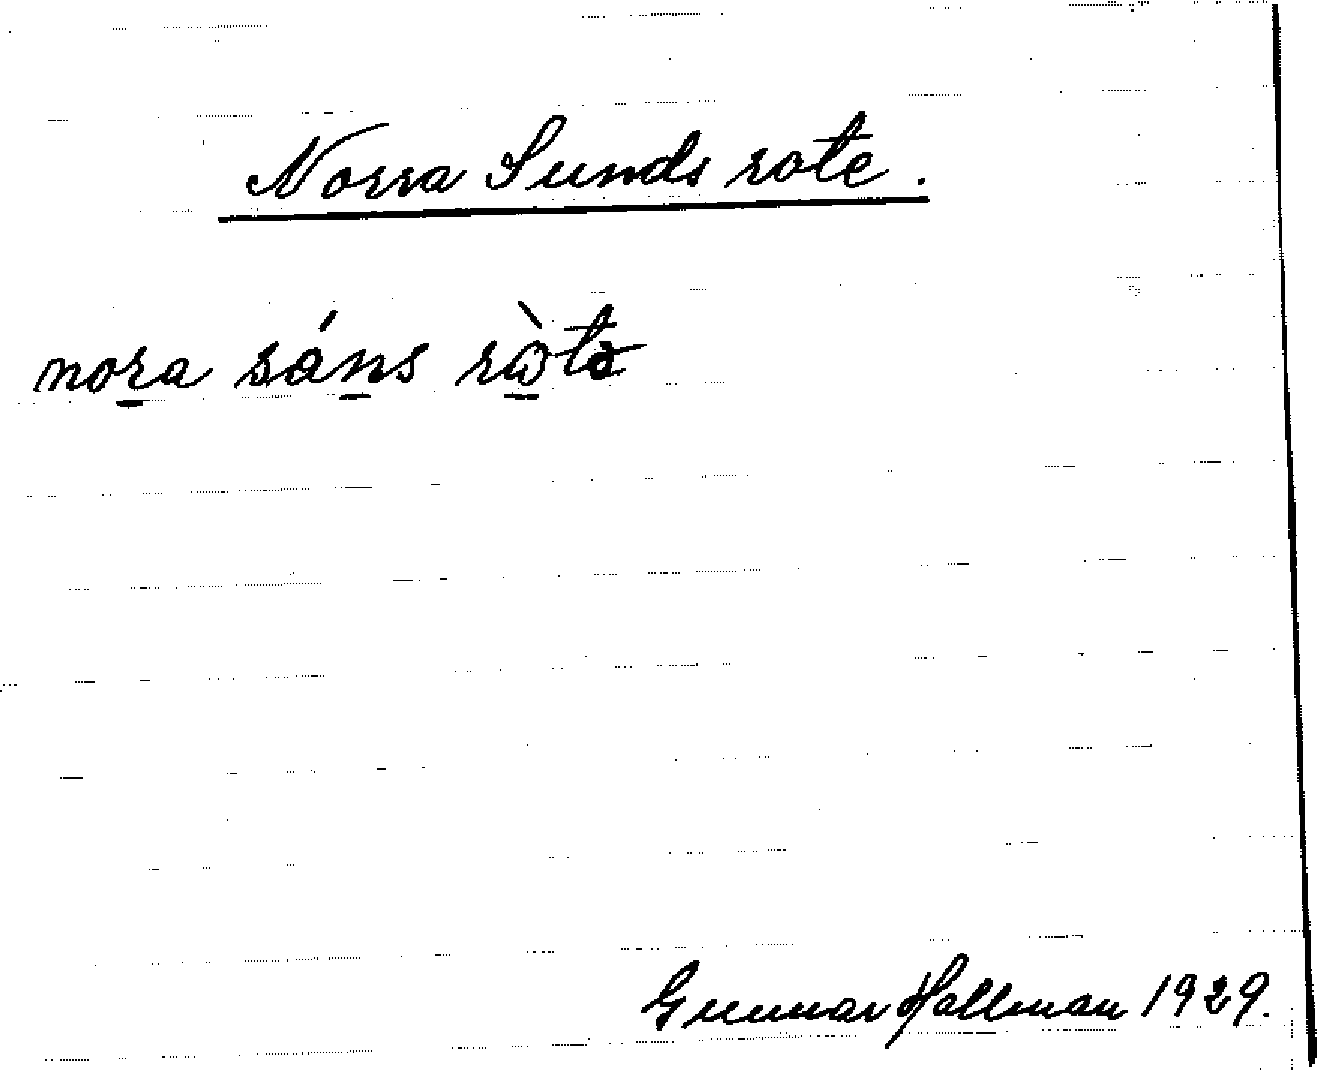 Norra Sunds rote.
nora sáns ròtə
Gunnar Hallman 1929.